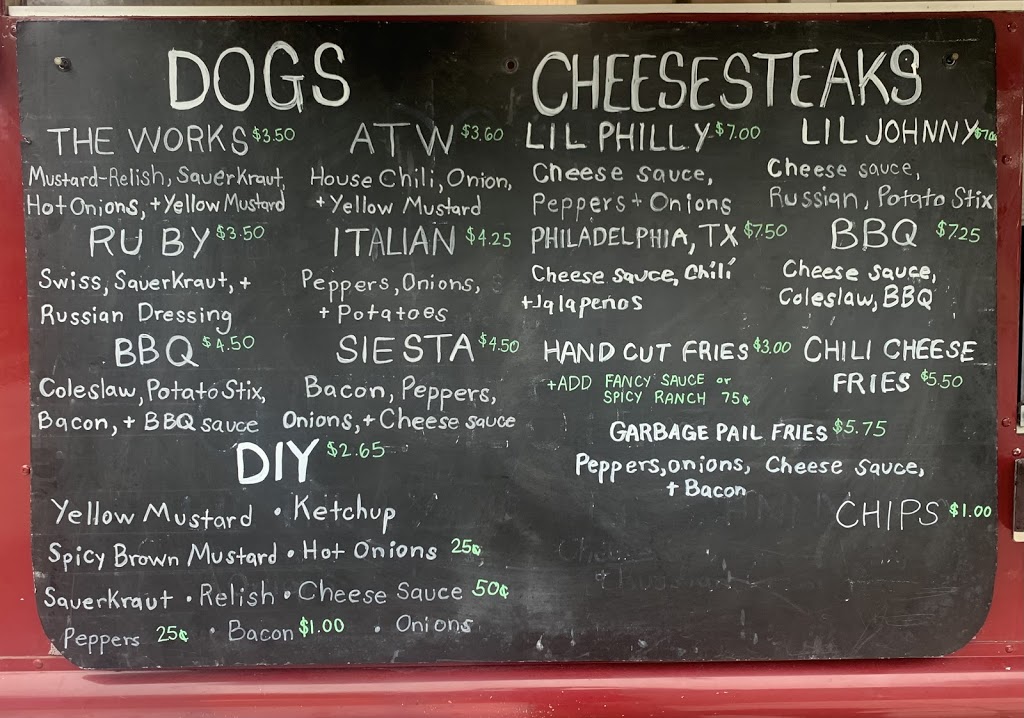 DOGS
THE WORKS $3.50
Mustard-Relish, Sauerkraut,
Hot Onions, + Yellow Mustard
ATW $3.60
House Chili, Onion,
+ Yellow Mustard
RUBY $3.50
Swiss, Sauerkraut, +
Russian Dressing
ITALIAN $4.25
Peppers, Onions,
+ Potatoes
BBQ $4.50
Coleslaw, Potato Stix,
Bacon, + BBQ sauce
SIESTA $4.50
Bacon, Peppers,
Onions, + Cheese sauce
DIY $2.65
Yellow Mustard • Ketchup
Spicy Brown Mustard • Hot Onions 25¢
Sauerkraut • Relish • Cheese Sauce 50¢
Peppers 25¢ • Bacon $1.00 • Onions
CHEESESTEAKS
LIL PHILLY $7.00
Cheese sauce,
Peppers + Onions
LIL JOHNNY $7.00
Cheese sauce,
Russian, Potato Stix
PHILADELPHIA, TX $7.50
Cheese sauce, Chili
+Jalapeños
BBQ $7.25
Cheese sauce,
Coleslaw, BBQ
HAND CUT FRIES $3.00
+ADD FANCY SAUCE or
SPICY RANCH 75¢
CHILI CHEESE
FRIES $5.50
GARBAGE PAIL FRIES $5.75
Peppers, onions, Cheese sauce,
+ Bacon
CHIPS $1.00